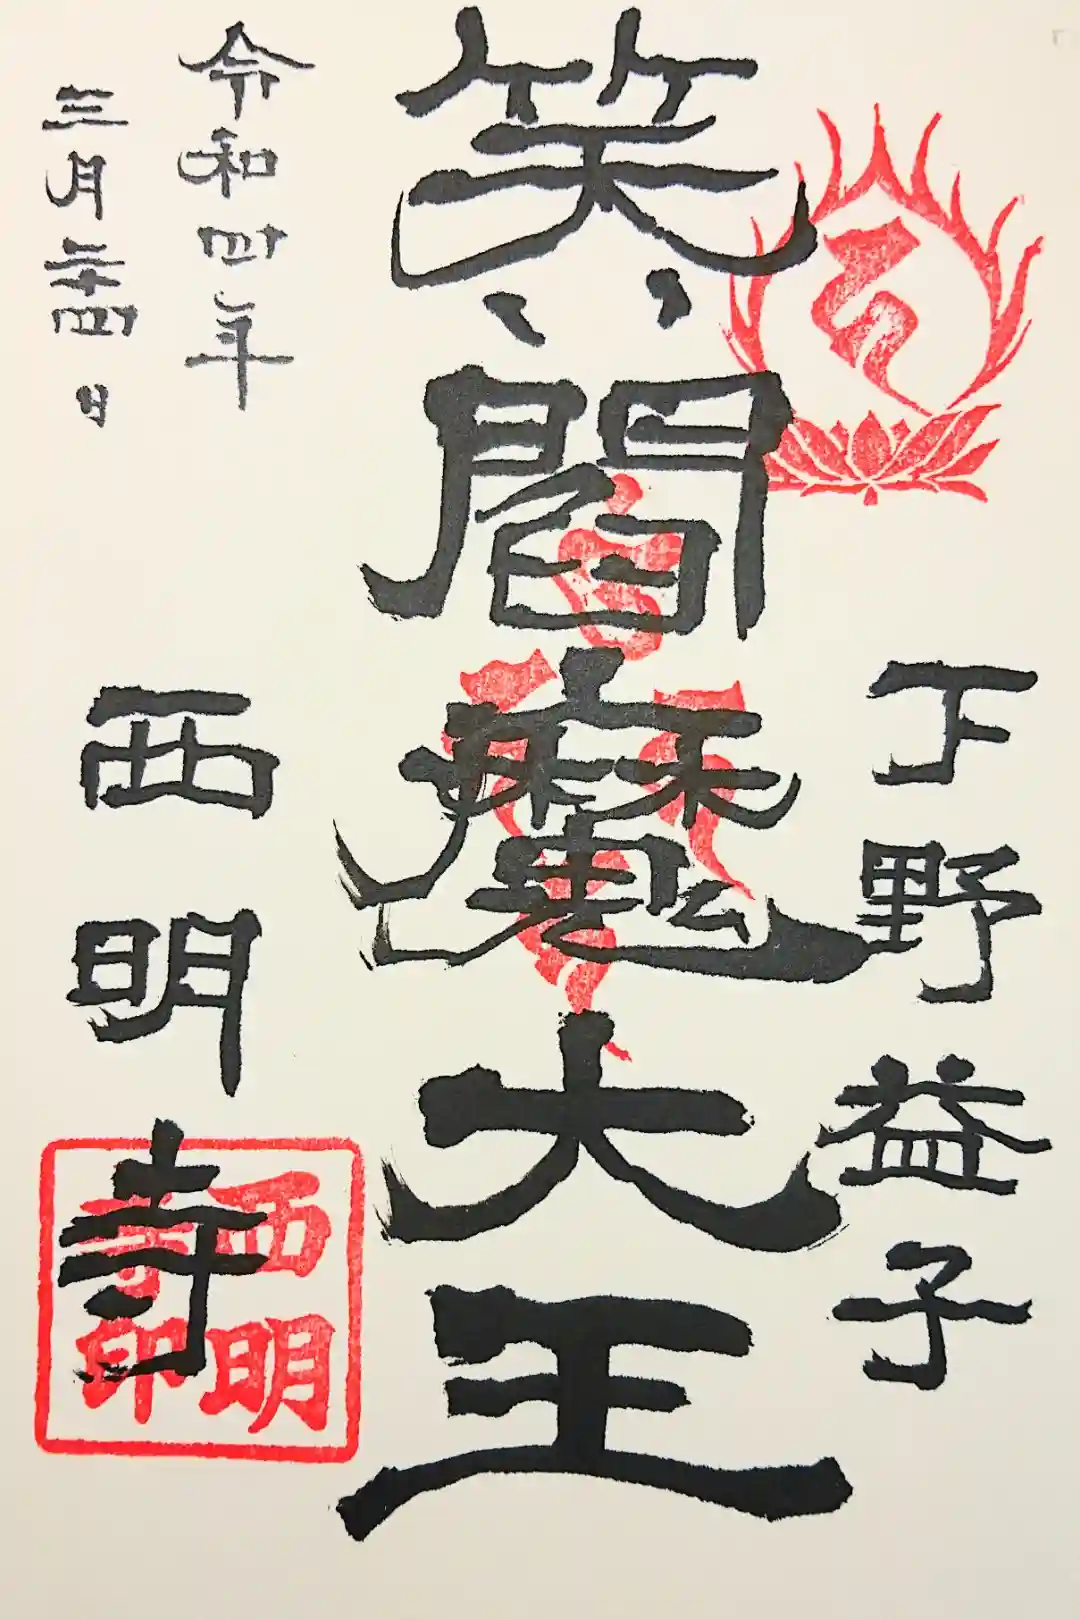 下野益子
笑い閻魔大王
令和四年
三月二十四日
西明寺
西明
寺印